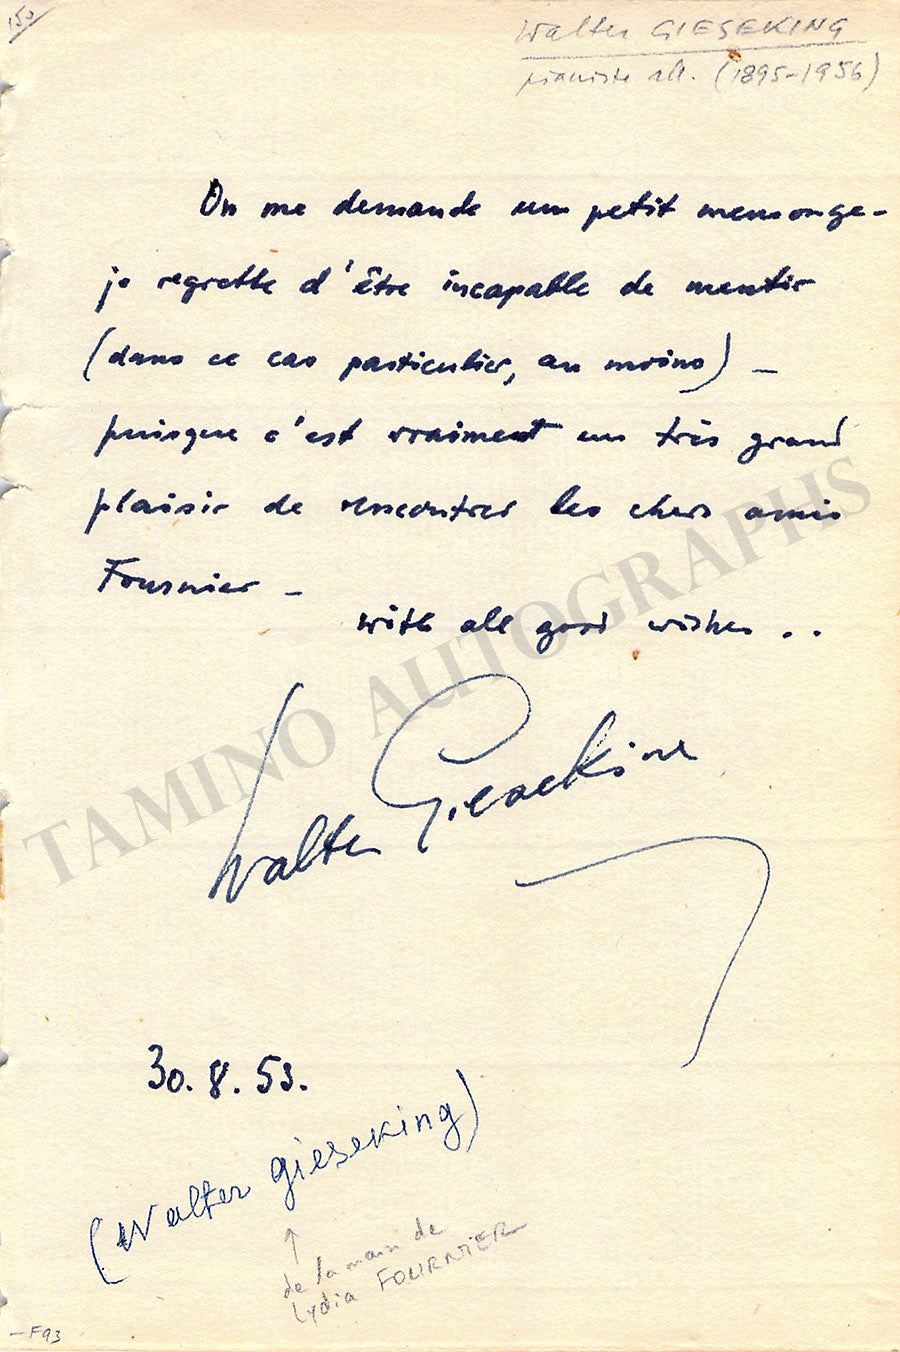 150
Walter GIESEKING
pianiste all. (1895-1956)
On me demande un petit mensonge-
je regrette d'être incapable de mentir
(dans ce cas particulier, au moins) -
puisque c'est vraiment un très grand
plaisir de rencontrer les chers amis
Fournier -
with all good wishes ..
Walter Gieseking
30.8.53.
(Walter gieseking)
↑
de la main de
Lydia FOURNIER
-F93
TAMINO AUTOGRAPHS